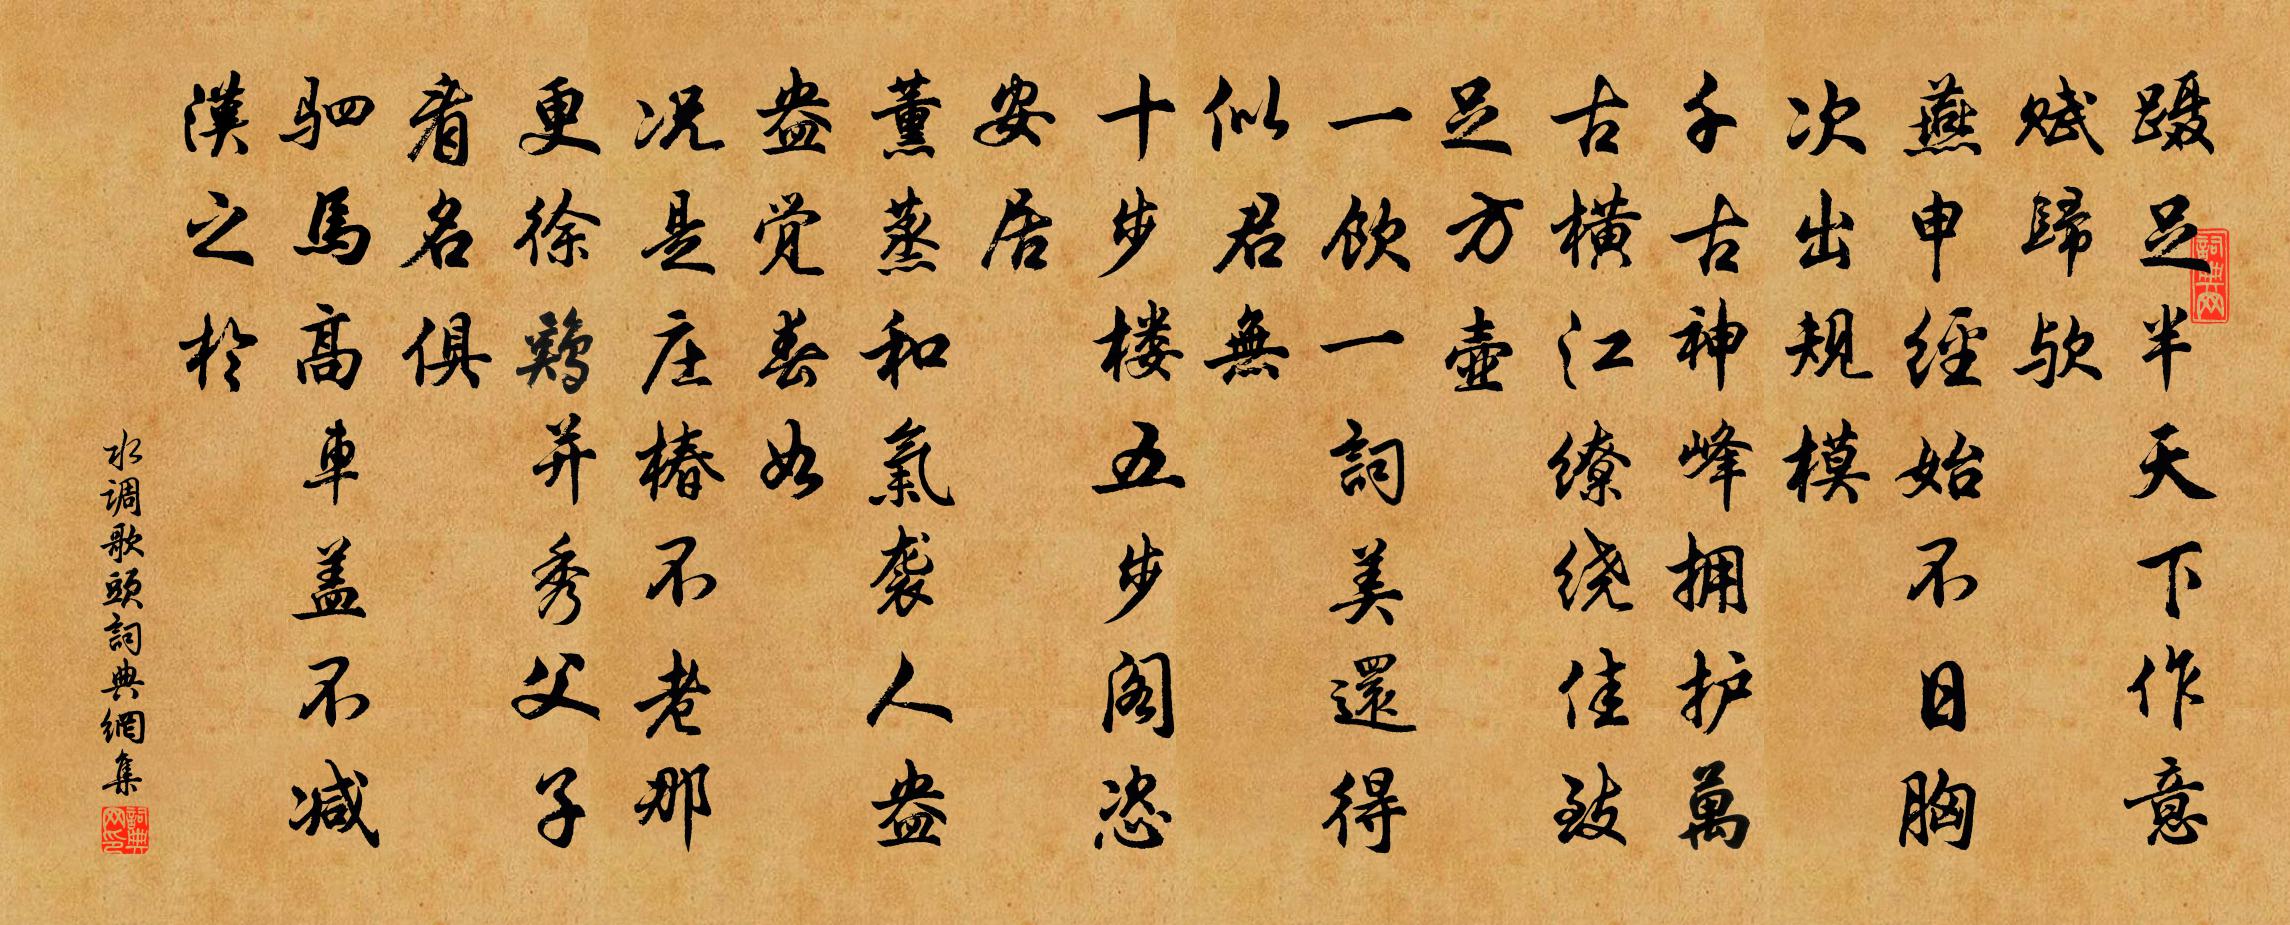 蹑足半天下作意
赋歸欤
燕申經始不日胸
次出規模
千古神峰拥护萬
古横江缭绕佳致
足方壶
一飲一詞美還得
似君無
十步楼五步阁恣
安居
薰蒸和氣袭人盎
盎觉春如
况是庄椿不老那
更徐鵷并秀父子
看名俱
驷馬高車盖不减
漢之於
水调歌頭詞典網集
詞典网
詞典网印